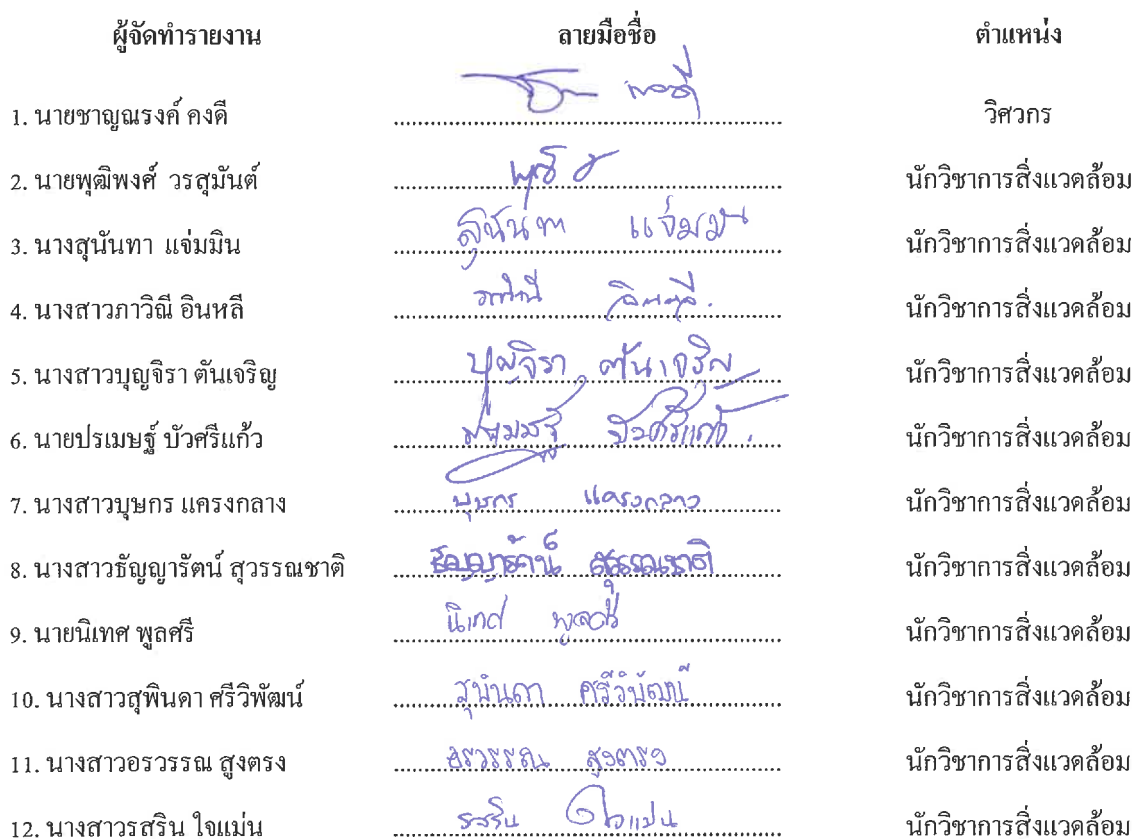 ผู้จัดทำรายงาน ลายมือชื่อ ตำแหน่ง
1. นายชาญณรงค์ คงดี วิศวกร
2. นายพุฒิพงศ์ วรสุมันต์ นักวิชาการสิ่งแวดล้อม
3. นางสุนันทา แจ่มมิน สุนันทา แจ่มมิน นักวิชาการสิ่งแวดล้อม
4. นางสาวภาวิณี อินหลี นักวิชาการสิ่งแวดล้อม
5. นางสาวบุญจิรา ตันเจริญ บุญจิรา ตันเจริญ นักวิชาการสิ่งแวดล้อม
6. นายปรเมษฐ์ บัวศรีแก้ว นักวิชาการสิ่งแวดล้อม
7. นางสาวบุษกร แครงกลาง บุษกร แครงกลาง นักวิชาการสิ่งแวดล้อม
8. นางสาวธัญญารัตน์ สุวรรณชาติ ธัญญารัตน์ สุวรรณชาติ นักวิชาการสิ่งแวดล้อม
9. นายนิเทศ พูลศรี นิเทศ พูลศรี นักวิชาการสิ่งแวดล้อม
10. นางสาวสุพินดา ศรีวิพัฒน์ สุพินดา ศรีวิพัฒน์ นักวิชาการสิ่งแวดล้อม
11. นางสาวอรวรรณ สูงตรง อรวรรณ สูงตรง นักวิชาการสิ่งแวดล้อม
12. นางสาวรสริน ใจแม่น รสริน ใจแม่น นักวิชาการสิ่งแวดล้อม